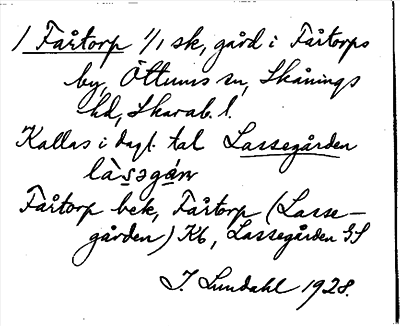 / Fårtorp 1/1 sk, gård i Fårtorps
by, Öttums sn, Skånings
hd, Skarab. l.
Kallas i dagl. tal Lassegården
làsəgán
Fårtorp bek, Fårtorp (Lasse-
gården) Kb, Lassegården GS
I. Lundahl 1928.